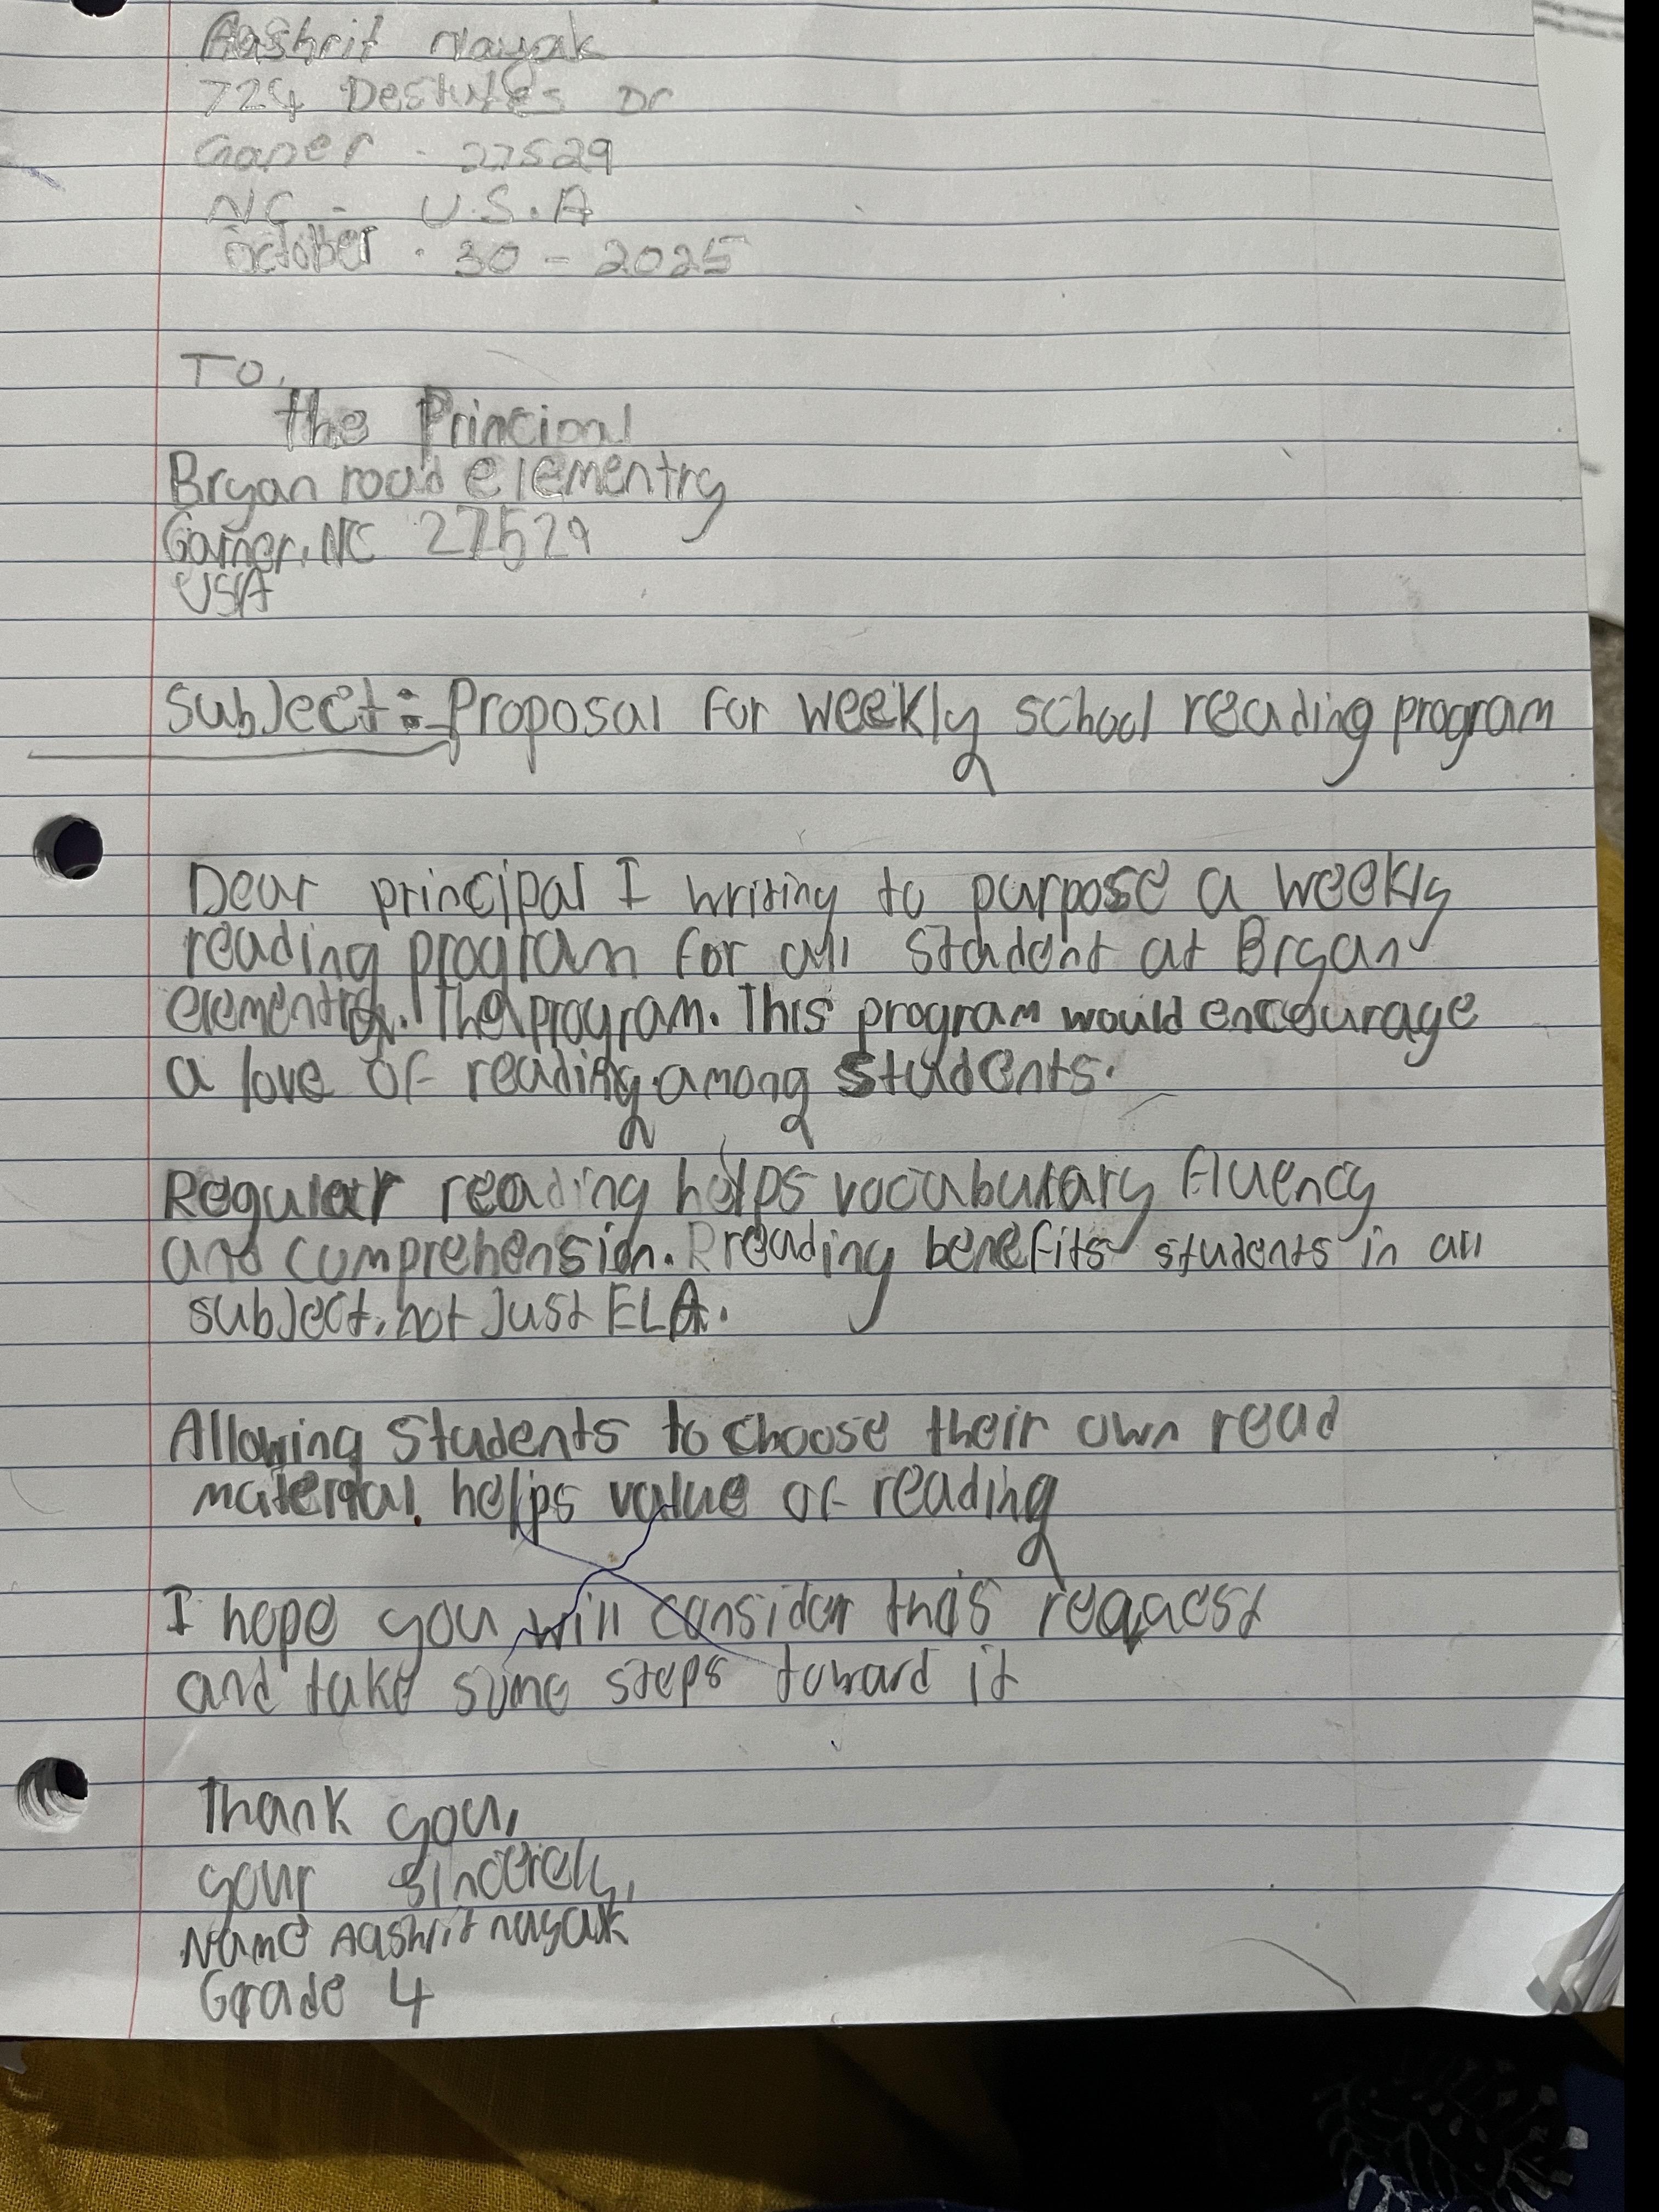 Aashrit Nayak
724 Destutes Dr
Ganer - 27529
NC - U.S.A
October - 30 - 2025
To,
the Principal
Bryan road elementry
Garner, NC 27529
USA
Subject:- Proposal for weekly school reading program
Dear principal I writing to purpose a weekly
reading program for all student at Bryan
elementry. The program. This program would encourage
a love of reading among students.
Regular reading helps vocabulary fluency
and comprehension. Rreading benefits students in all
subject, not Just ELA.
Allowing students to choose their own read
material. helps value of reading
I hope you will consider this request
and take some steps toward it
Thank you,
your sincerely,
Name Aashrit nayak
Grade 4